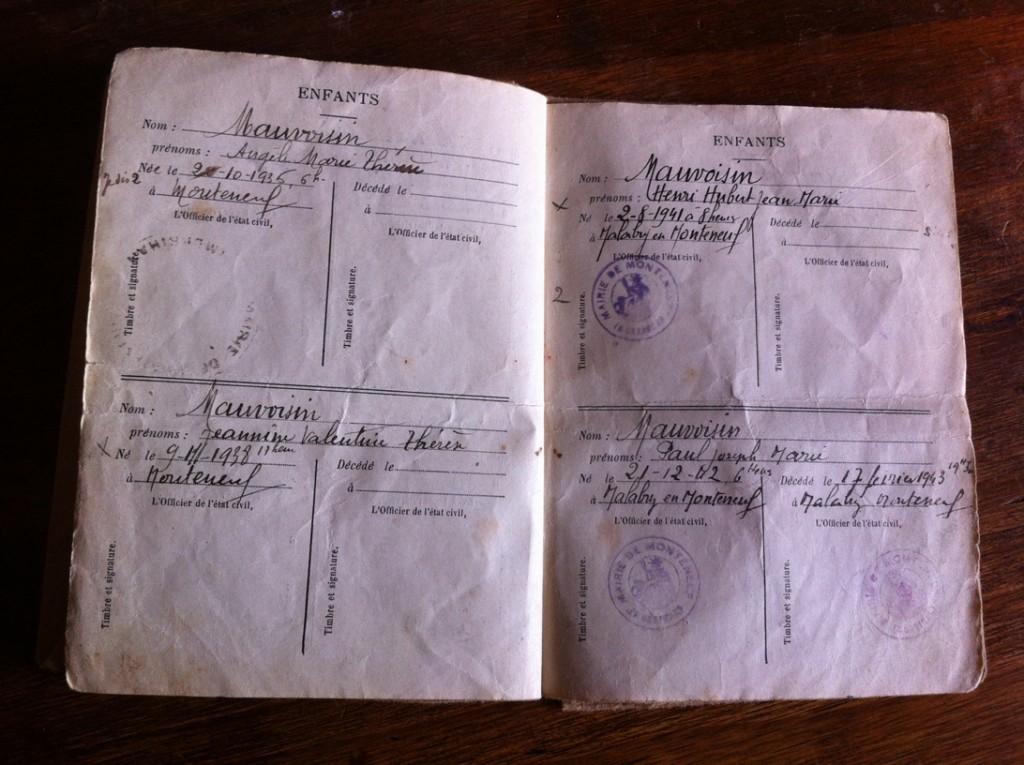 ENFANTS
Nom : Mauvoisin
prénoms : Angèle Marie Thérèse
Née le 2 -10-1936, 6 h.
à Monteneuf
L'Officier de l'état civil,
Timbre et signature.
MORBIHAN
MAIRIE DE
Décédé le
à
L'Officier de l'état civil,
Timbre et signature.
Nom : Mauvoisin
prénoms : Jeannine Valentine Thérèse
x Né le 9- -1938 11 heures
à Monteneuf
L'Officier de l'état civil,
Timbre et signature.
Décédé le
à
L'Officier de l'état civil,
Timbre et signature.
ENFANTS
Nom : Mauvoisin
prénoms : Henri Hubert Jean Marie
x Né le 2-8-1941 à 8 heures
à Malabry en Monteneuf
L'Officier de l'état civil,
2
Timbre et signature.
MAIRIE DE MONTENEUF
Décédé le
à
L'Officier de l'état civil,
Timbre et signature.
Nom : Mauvoisin
prénoms : Paul Joseph Marie
Né le 21-12-42, 6 heures
à Malabry en Monteneuf
L'Officier de l'état civil,
Timbre et signature.
MAIRIE DE MONTENEUF
Décédé le 17 février 1943
à Malabry Monteneuf
L'Officier de l'état civil,
Timbre et signature.